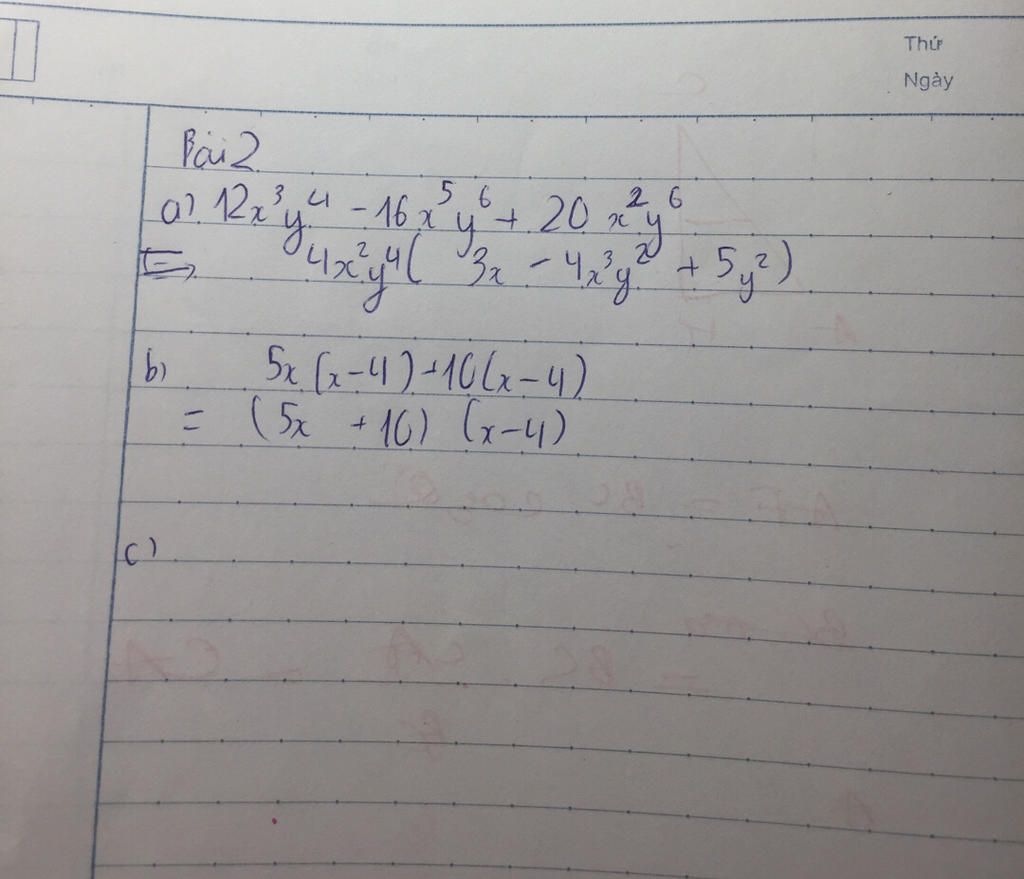 Thứ
Ngày
Bài 2
a) 12x³y⁴ - 16x⁵y⁶ + 20x²y⁶
4x²y⁴( 3x - 4x³y² + 5y²)
b) 5x(x-4)+10(x-4)
= (5x +10) (x-4)
c)